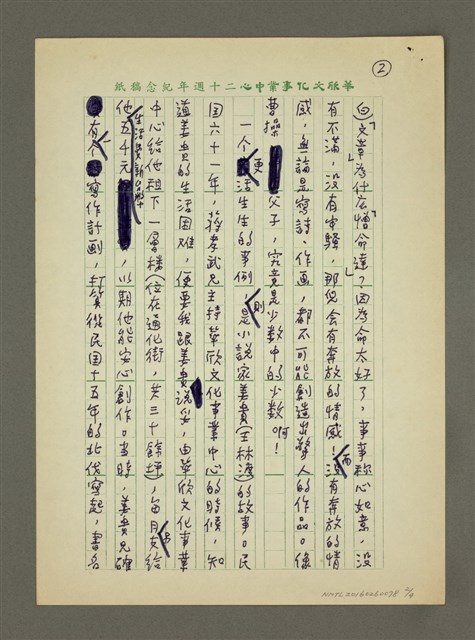 ②
華欣文化事業中心二十週年紀念稿紙
白「文章為什么憎命達」?因為命太好了,事事称心如意,沒
有不滿,沒有牢騷,那兒会有奔放的情感!而沒有奔放的情
感,無論是寫詩、作画,都不可能創造出驚人的作品。像
曹操父子,究竟是少数中的少数啊!
一个更活生生的事例,則是小說家姜貴(王林渡)的故事。民
国六十一年,蔣孝武兄主持華欣文化事業中心的時候,知
道姜貴的生活困难,便要我跟姜貴說妥,由華欣文化事業
中心給他租下一層楼(位在通化街,共三十餘坪),每月另支給
他生活費新台幣五千元,以期他能安心創作。当時,姜貴兄確
有一寫作計劃,打算從民国十五年的北伐寫起,書名
NMTL20160260078 2/9